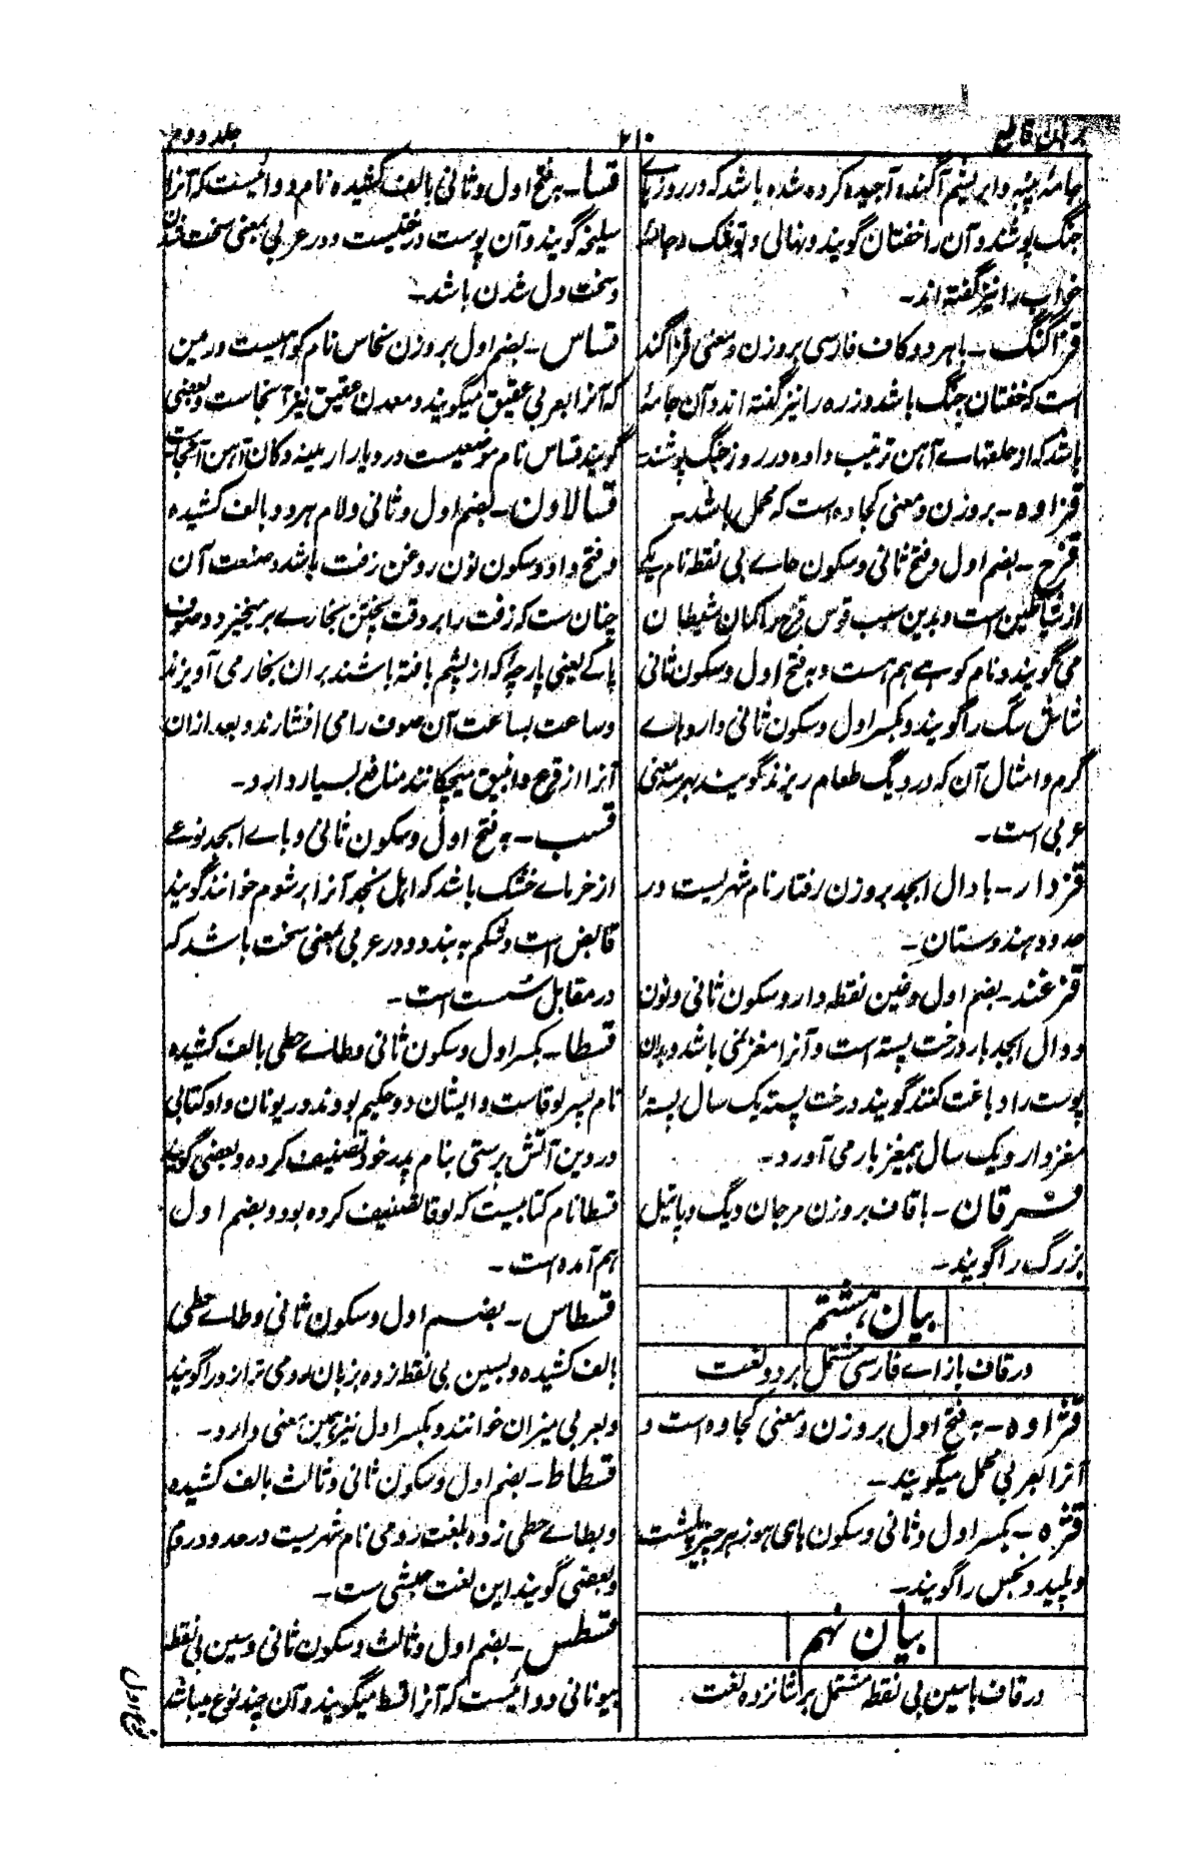 برهان قاطع
۲۱۰
جلد دوم
جامۀ پنبه و ابریشم آگنده آجیده کرده شده باشد که در روزهای
جنگ پوشند و آن را خفتان گویند و نهالی و توشک و جامۀ
خواب را نیز گفته اند۔
قزاگنگ۔ با هر دو کاف فارسی بروزن و معنی قزاگند
است که خفتان جنگ باشد و زره را نیز گفته اند و آن جامۀ
باشد که از حلقهاے آهن ترتیب داده در روز جنگ پوشند۔
قزاوه۔ بروزن و معنی کجاوه است که محمل باشد۔
قزح۔ بضم اول و فتح ثانی و سکون حاے بی نقطه نام یکے
از شیاطین است و بدین سبب قوس قزح را کمان شیطان
می گویند و نام کوهے هم هست و به فتح اول و سکون ثانی
شاش سگ را گویند و بکسر اول و سکون ثانی داروهاے
گرم و امثال آن که در دیگ طعام ریزند گویند بهر سه معنی
عربی است۔
قزدار۔ با دال ابجد بروزن رفتار نام شهریست در
حدود هندوستان۔
قزغند۔ بضم اول و غین نقطه دار و سکون ثانی و نون
و دال ابجد بار درخت پسته است و آنرا مغز نمی باشد و بدان
پوست را دباغت کنند گویند درخت پسته یک سال پستۀ
مغزدار و یک سال بیمغز بار می آورد۔
قزقان۔ با قاف بروزن مرجان دیگ و پاتیل
بزرگ را گویند۔
بیان هشتم
در قاف با زاے فارسی مشتمل بر دو لغت
قژاوه۔ به فتح اول بروزن و معنی کجاوه است و
آنرا بعربی محمل میگویند۔
قژه۔ بکسر اول و ثانی و سکون های هوز هر چیز پلشت
و پلید و نجس را گویند۔
بیان نهم
در قاف با سین بی نقطه مشتمل بر شانزده لغت
قسا۔ به فتح اول و ثانی بالف کشیده نام دوائیست که آنرا
سلیخه گویند و آن پوست درختیست و در عربی بمعنی سخت شدن
و سخت دل شدن باشد۔
قساس۔ بضم اول بروزن نخاس نام کوهیست در یمن
که آنرا بعربی عقیق میگویند و معدن عقیق نیز آنجاست و بعضی
گویند قساس نام موضعیست در دیار ارمینه و کان آهن آنجاست
قسالاون۔ بضم اول و ثانی و لام هر دو بالف کشیده
و فتح واو و سکون نون روغن زفت باشد و صنعت آن
چنان ست که زفت را بر وقت پختن بخارے بر میخیزد و صوف
پاکے یعنی پارچۀ که از پشم بافته باشند بر ان بخار می آویزند
و ساعت بساعت آن صوف را می افشارند و بعد ازان
آنرا از قرع و انبیق میچکانند منافع بسیار دارد۔
قسب۔ به فتح اول و سکون ثانی و باے ابجد نوعے
از خرماے خشک باشد که اهل نجد آنرا برشوم خوانند گویند
قابض است و شکم به بندد و در عربی بمعنی سخت باشد که
در مقابل سُست است۔
قسطا۔ بکسر اول و سکون ثانی و طاے حطی بالف کشیده
نام پسر لوقاست و ایشان دو حکیم بودند در یونان و او کتابی
در دین آتش پرستی بنام پدر خود تصنیف کرده و بعضی گویند
قسطا نام کتابیست که لوقا تصنیف کرده بود و بضم اول
هم آمده است۔
قسطاس۔ بضم اول و سکون ثانی و طاے حطی
بالف کشیده و بسین بی نقطه زده بزبان رومی ترازو را گویند
و بعربی میزان خوانند و بکسر اول نیز همین معنی دارد۔
قسطاط۔ بضم اول و سکون ثانی و ثالث بالف کشیده
و بطاے حطی زده بلغت رومی نام شهریست در حدود روم
و بعضی گویند این لغت حبشی ست۔
قسطس۔ بضم اول و ثالث و سکون ثانی و سین بی نقطه
بیونانی دوائیست که آنرا قسط میگویند و آن چند نوع میباشد